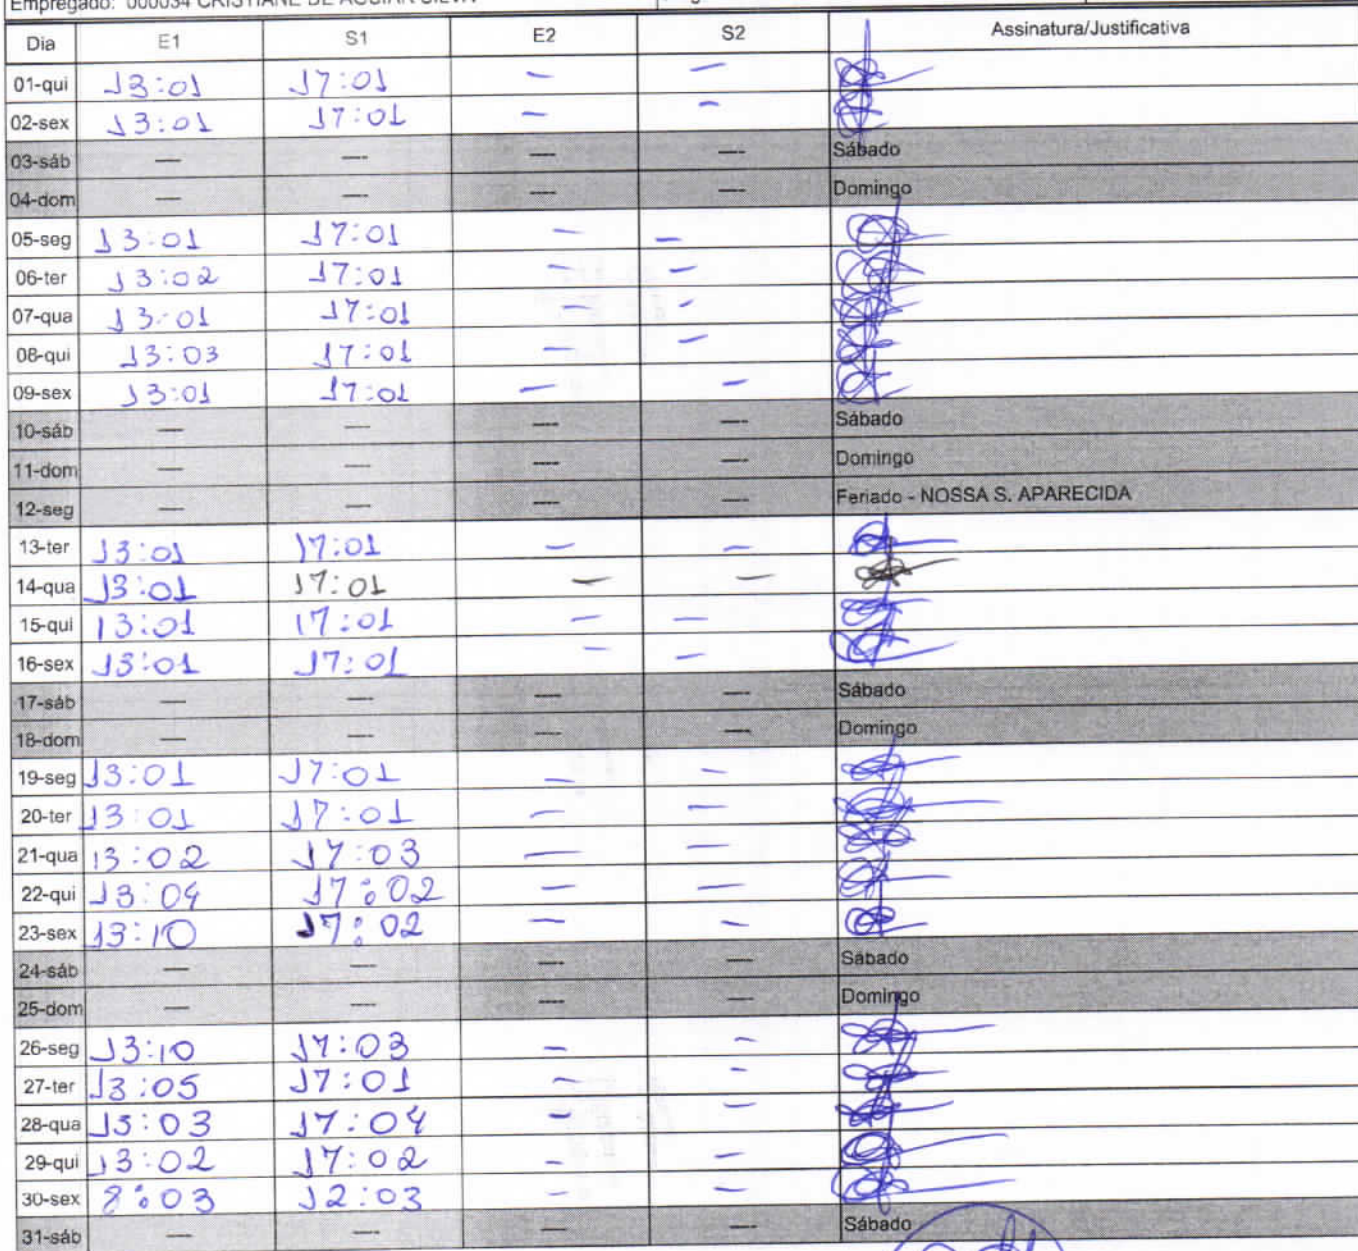 Empregado: 000034 CRISTIANE DE AGUIAR SILVA
Dia E1 S1 E2 S2 Assinatura/Justificativa
01-qui 13:01 17:01 - -
02-sex 13:01 17:01 - -
03-sáb --- --- --- --- Sábado
04-dom --- --- --- --- Domingo
05-seg 13:01 17:01 - -
06-ter 13:02 17:01 - -
07-qua 13:01 17:01 - -
08-qui 13:03 17:01 - -
09-sex 13:01 17:01 - -
10-sáb --- --- --- --- Sábado
11-dom --- --- --- --- Domingo
12-seg --- --- --- --- Feriado - NOSSA S. APARECIDA
13-ter 13:01 17:01 - -
14-qua 13:01 17:01 - -
15-qui 13:01 17:01 - -
16-sex 13:01 17:01 - -
17-sáb --- --- --- --- Sábado
18-dom --- --- --- --- Domingo
19-seg 13:01 17:01 - -
20-ter 13:01 17:01 - -
21-qua 13:02 17:03 - -
22-qui 13:04 17:02 - -
23-sex 13:10 17:02 - -
24-sáb --- --- --- --- Sábado
25-dom --- --- --- --- Domingo
26-seg 13:10 17:03 - -
27-ter 13:05 17:01 - -
28-qua 13:03 17:04 - -
29-qui 13:02 17:02 - -
30-sex 8:03 12:03 - -
31-sáb --- --- --- --- Sábado